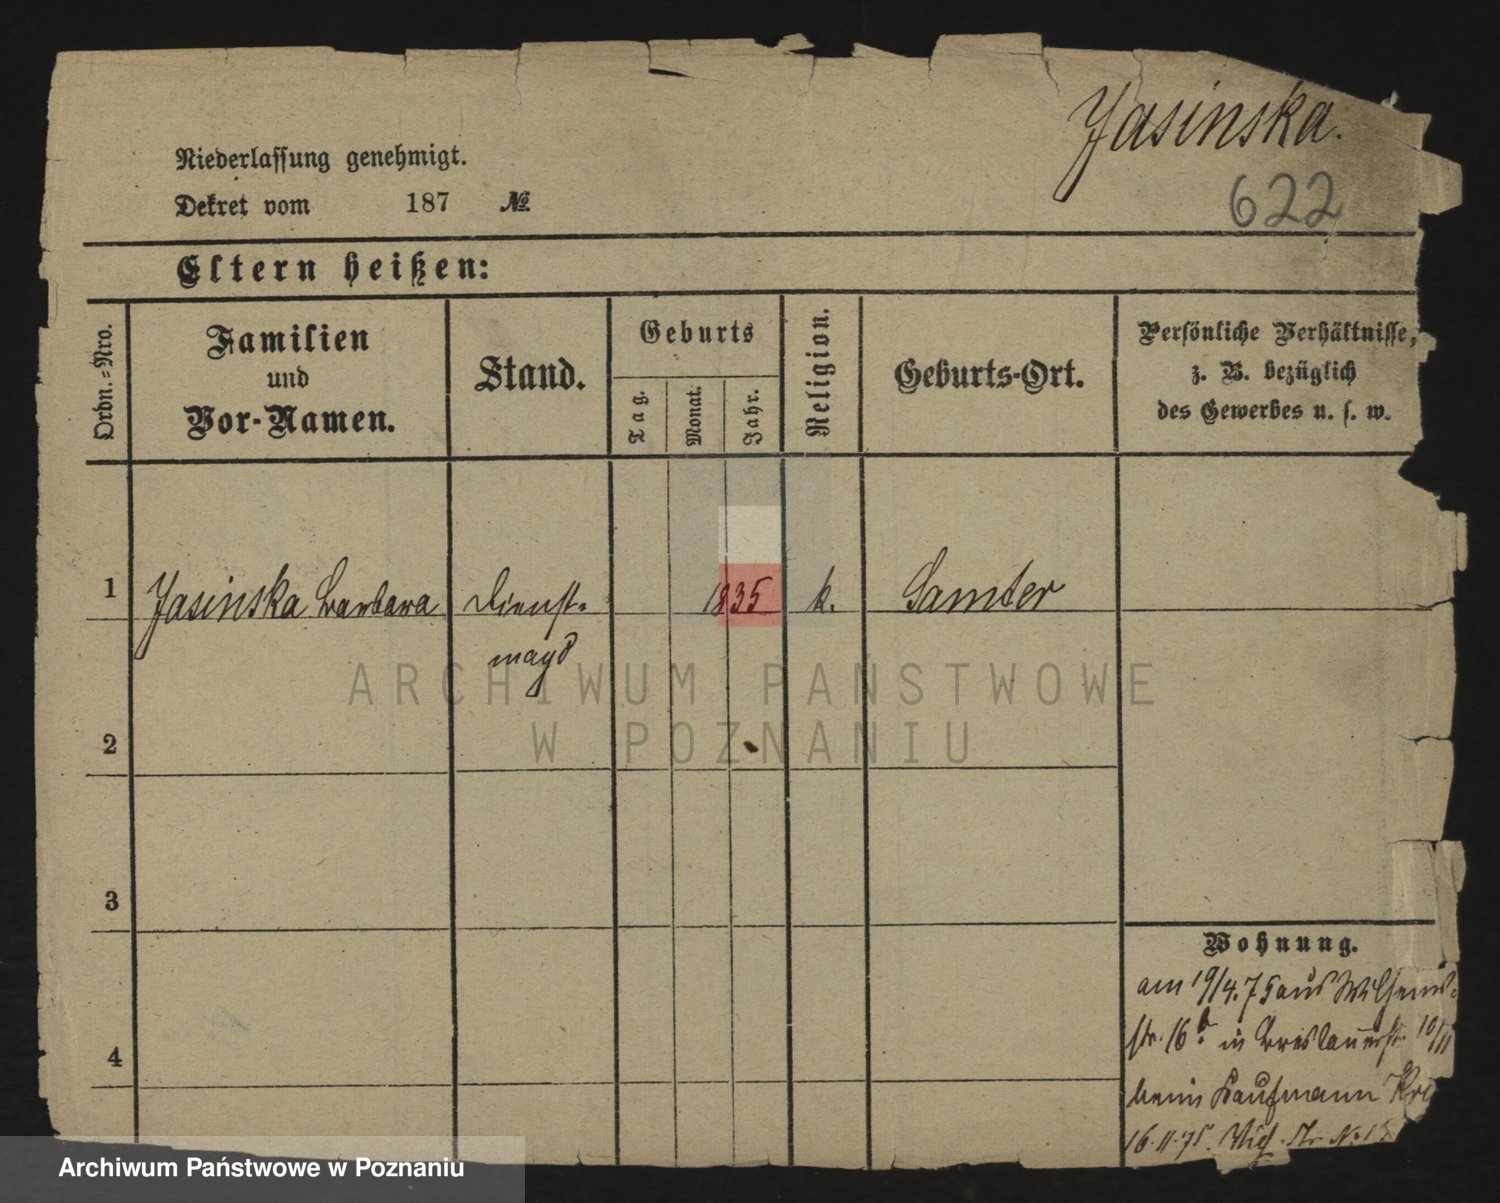 Jasinska.
622
Niederlassung genehmigt.
Dekret vom 187 №
Eltern heißen:
Ordn.-Nro.
Familien
und
Vor-Namen.
Stand.
Geburts
Tag.
Monat.
Jahr.
Religion.
Geburts-Ort.
Persönliche Verhältnisse,
z. B. bezüglich
des Gewerbes u. s. w.
1 Jasinska Barbara Dienst= 1835 k. Samter
magd
ARCHIWUM PAŃSTWOWE
W POZNANIU
2
3
4
Wohnung.
am 19/4.75 aus Wilhelms=
str. 16b. in Breslauerstr. 10/11
beim Kaufmann
16.11.75.
Archiwum Państwowe w Poznaniu